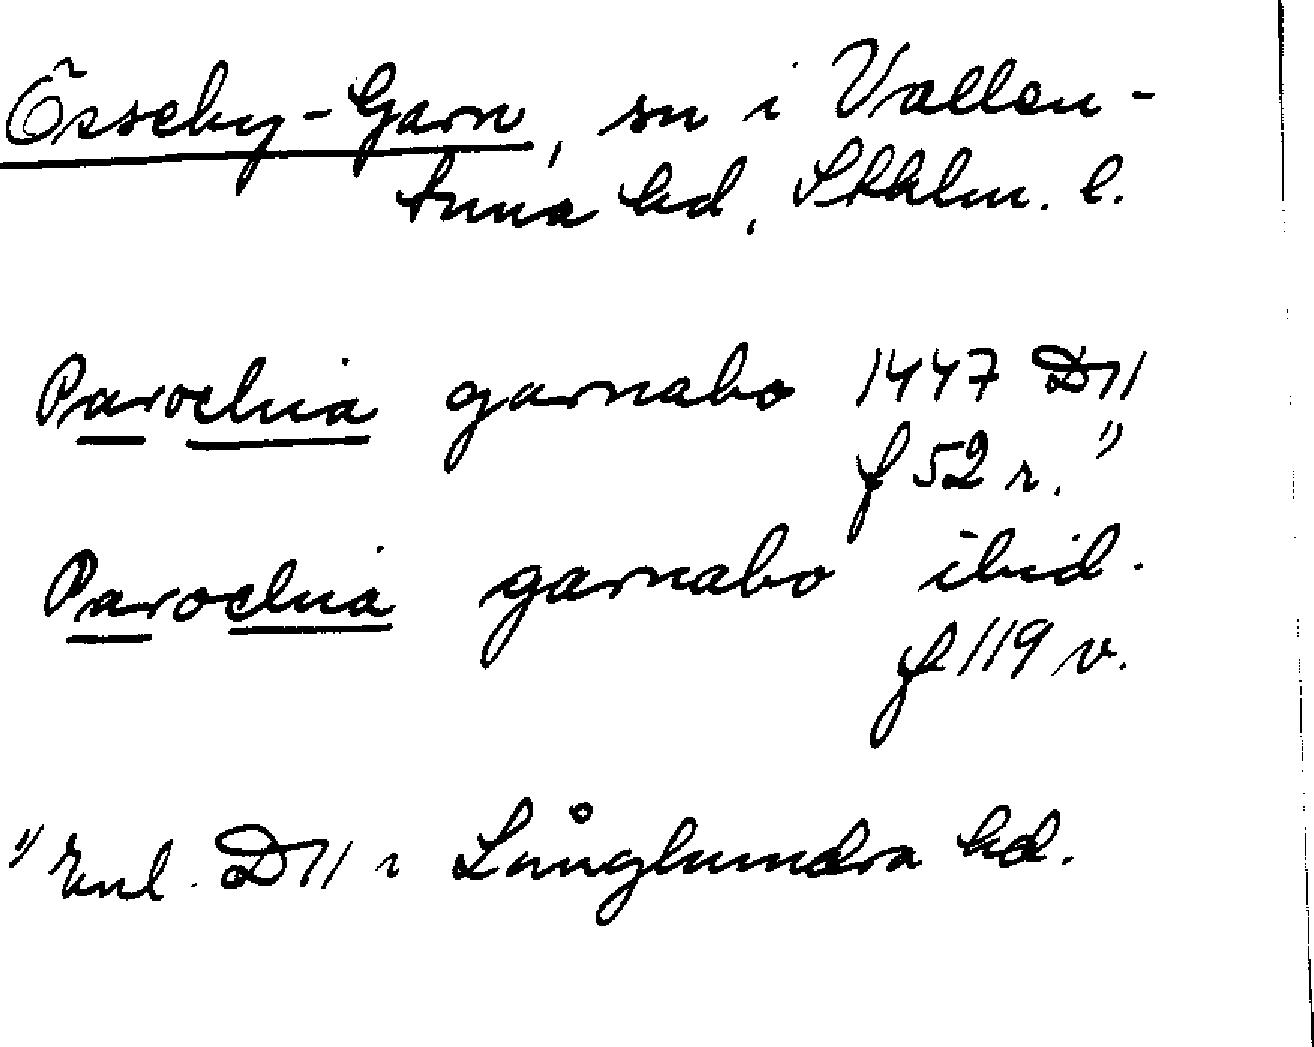 Össeby-Garn, sn i Vallen-
tuna hd, Sthlm. l.
Parochia garnabo 1447 D11
f 52 r. 1)
Parochia garnabo ibid.
f 119 v.
1) Enl. D11 i Långhundra hd.